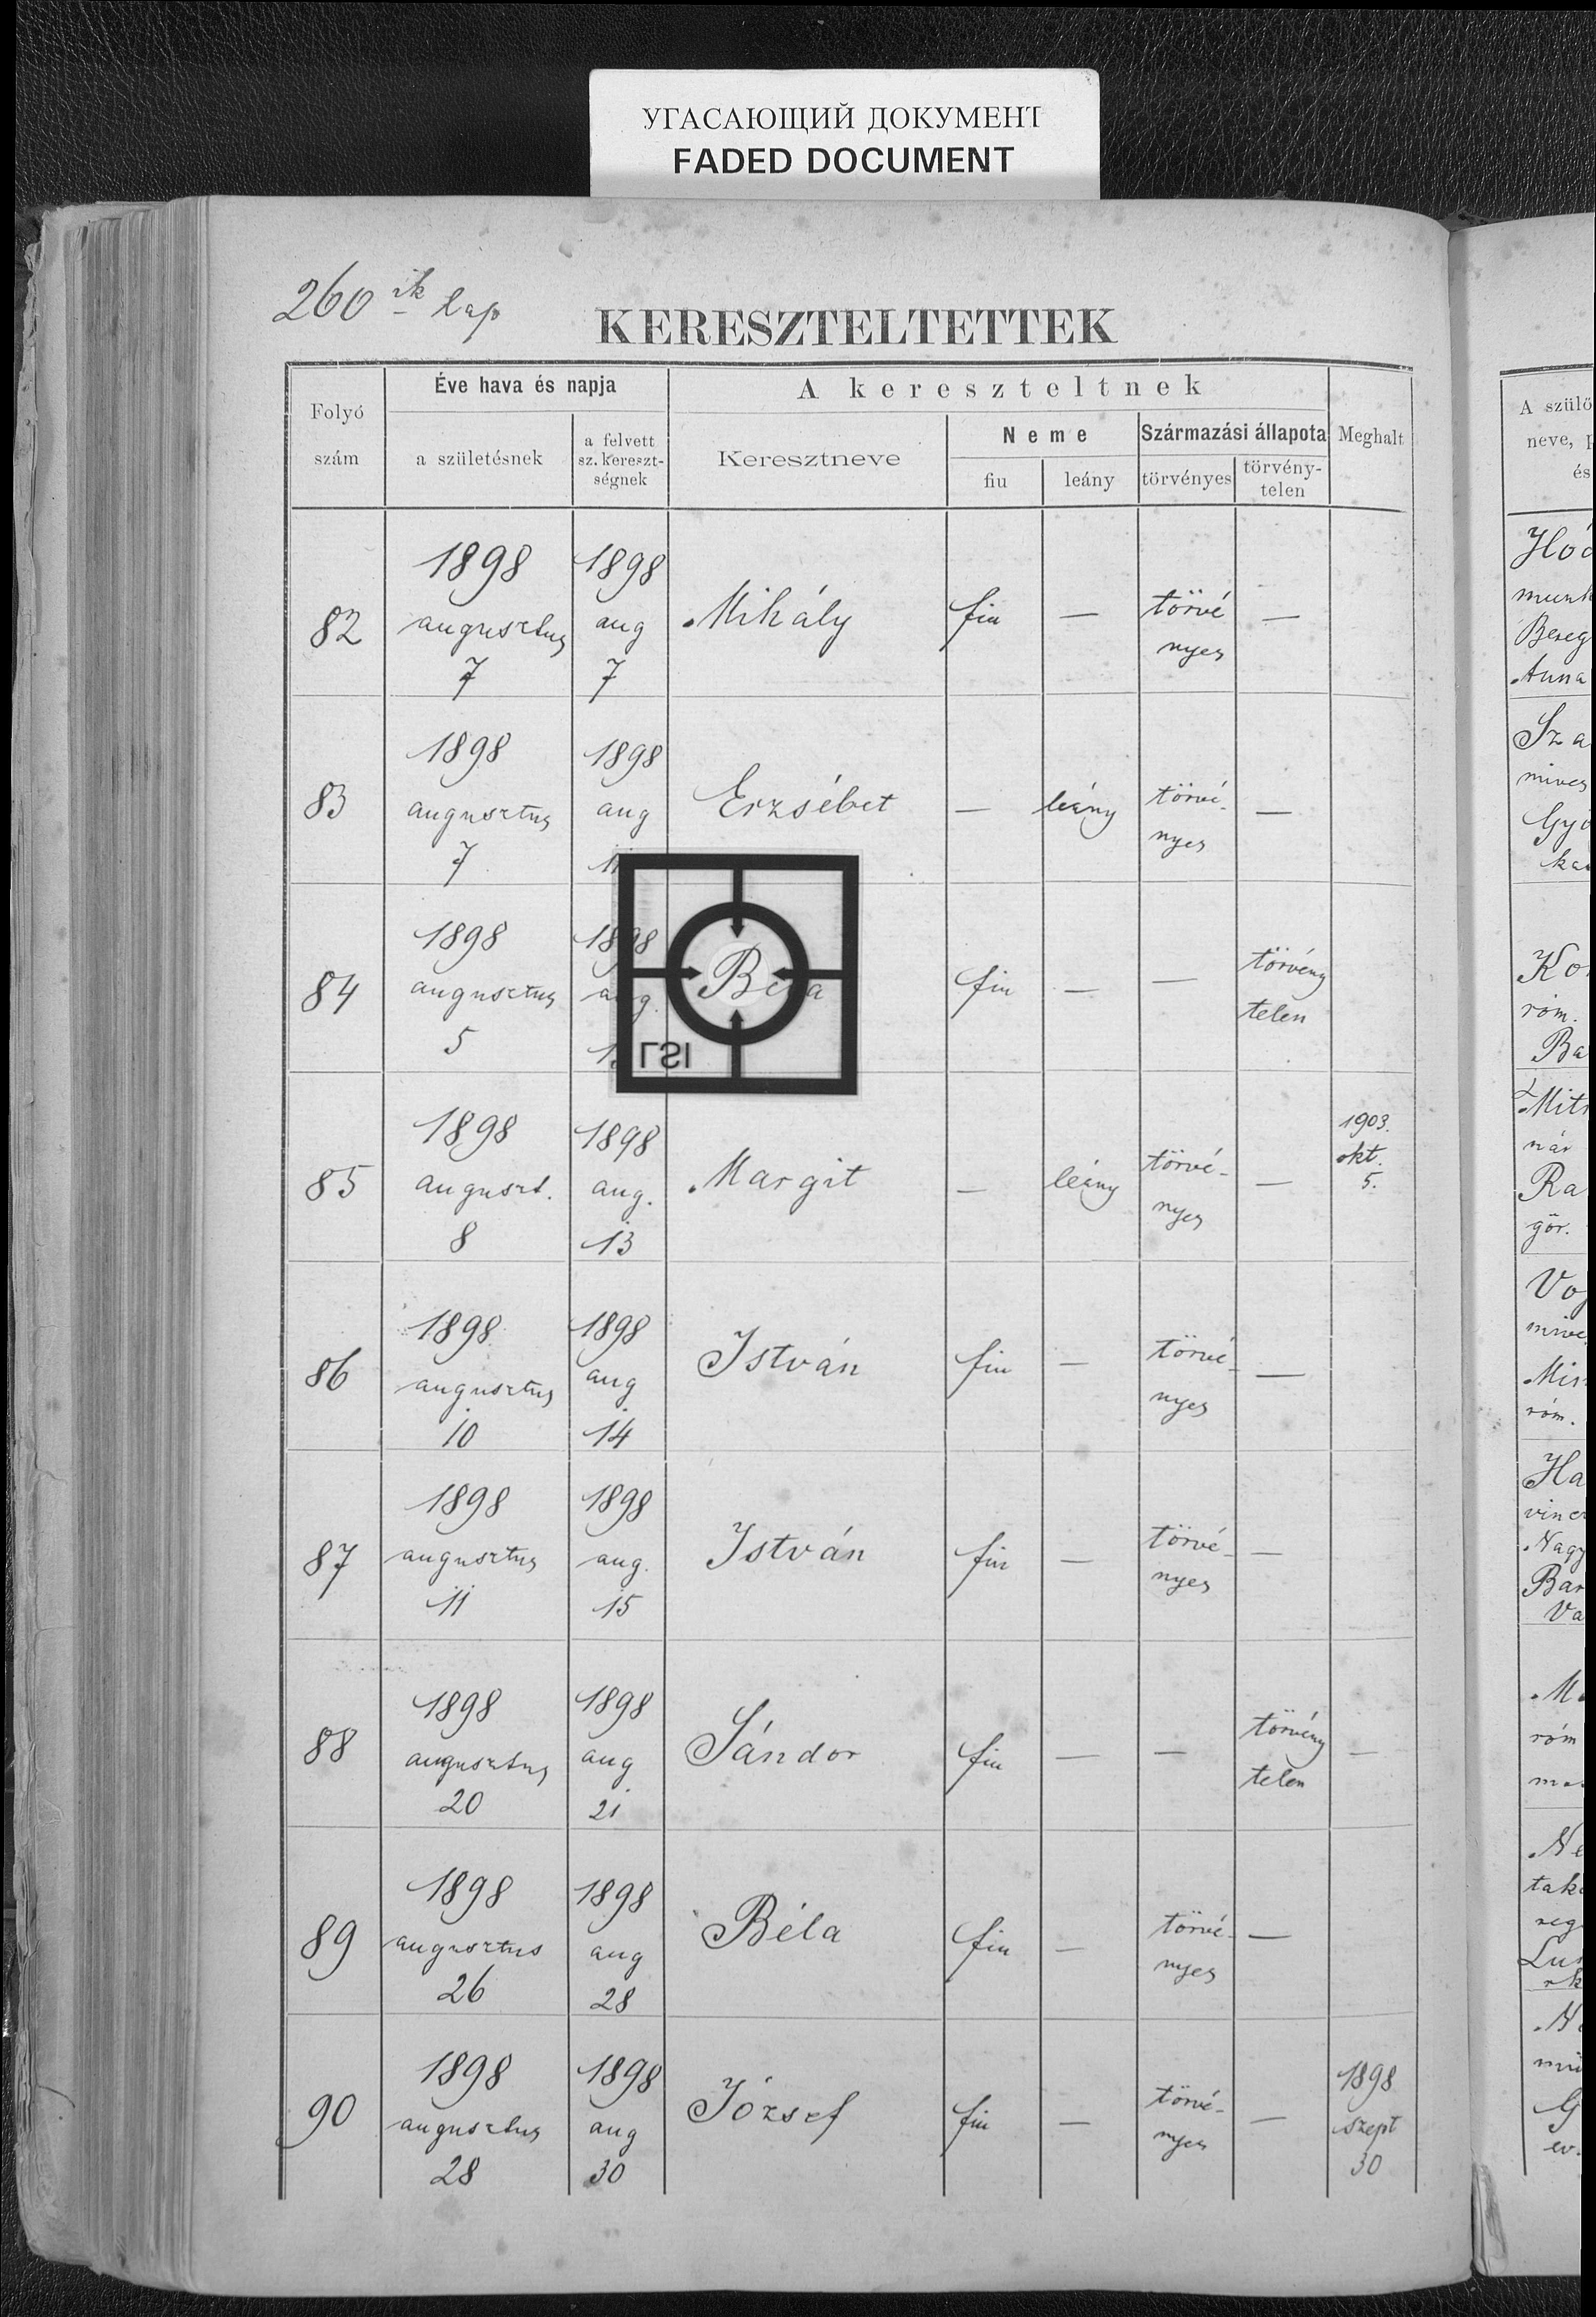 УГАСАЮЩИЙ ДОКУМЕНТ
FADED DOCUMENT
260 ik lap
KERESZTELTETTEK
Folyó szám
Éve hava és napja
a születésnek
a felvett sz. kereszt-ségnek
A kereszteltnek
Keresztneve
Neme
fiu
leány
Származási állapota
törvényes
törvény-telen
Meghalt
82 1898 augusztus 7 1898 aug 7 Mihály fiu — törvé nyes —
83 1898 augusztus 7 1898 aug Erzsébet — leány törvé- nyes —
84 1898 augusztus 5 1898 aug. Béla fiu — — törvény telen
85 1898 auguszt. 8 1898 aug. 13 Margit — leány törvé- nyes — 1903. okt. 5.
86 1898 augusztus 10 1898 aug 14 István fiu — törvé- nyes —
87 1898 augusztus 11 1898 aug. 15 István fiu — törvé- nyes —
88 1898 augusztus 20 1898 aug 21 Sándor fiu — — törvény telen —
89 1898 augusztus 26 1898 aug 28 Béla fiu — törvé- nyes —
90 1898 augusztus 28 1898 aug 30 József fiu — törvé- nyes — 1898 szept 30
LSI
A szülő
neve,
és
munk
Bereg
Anna
Sza
mives
Győ
róm.
Ba
Mit
Ra
gör.
róm.
Ha
Nagy
Bar
Va
róm
Ne
ev.